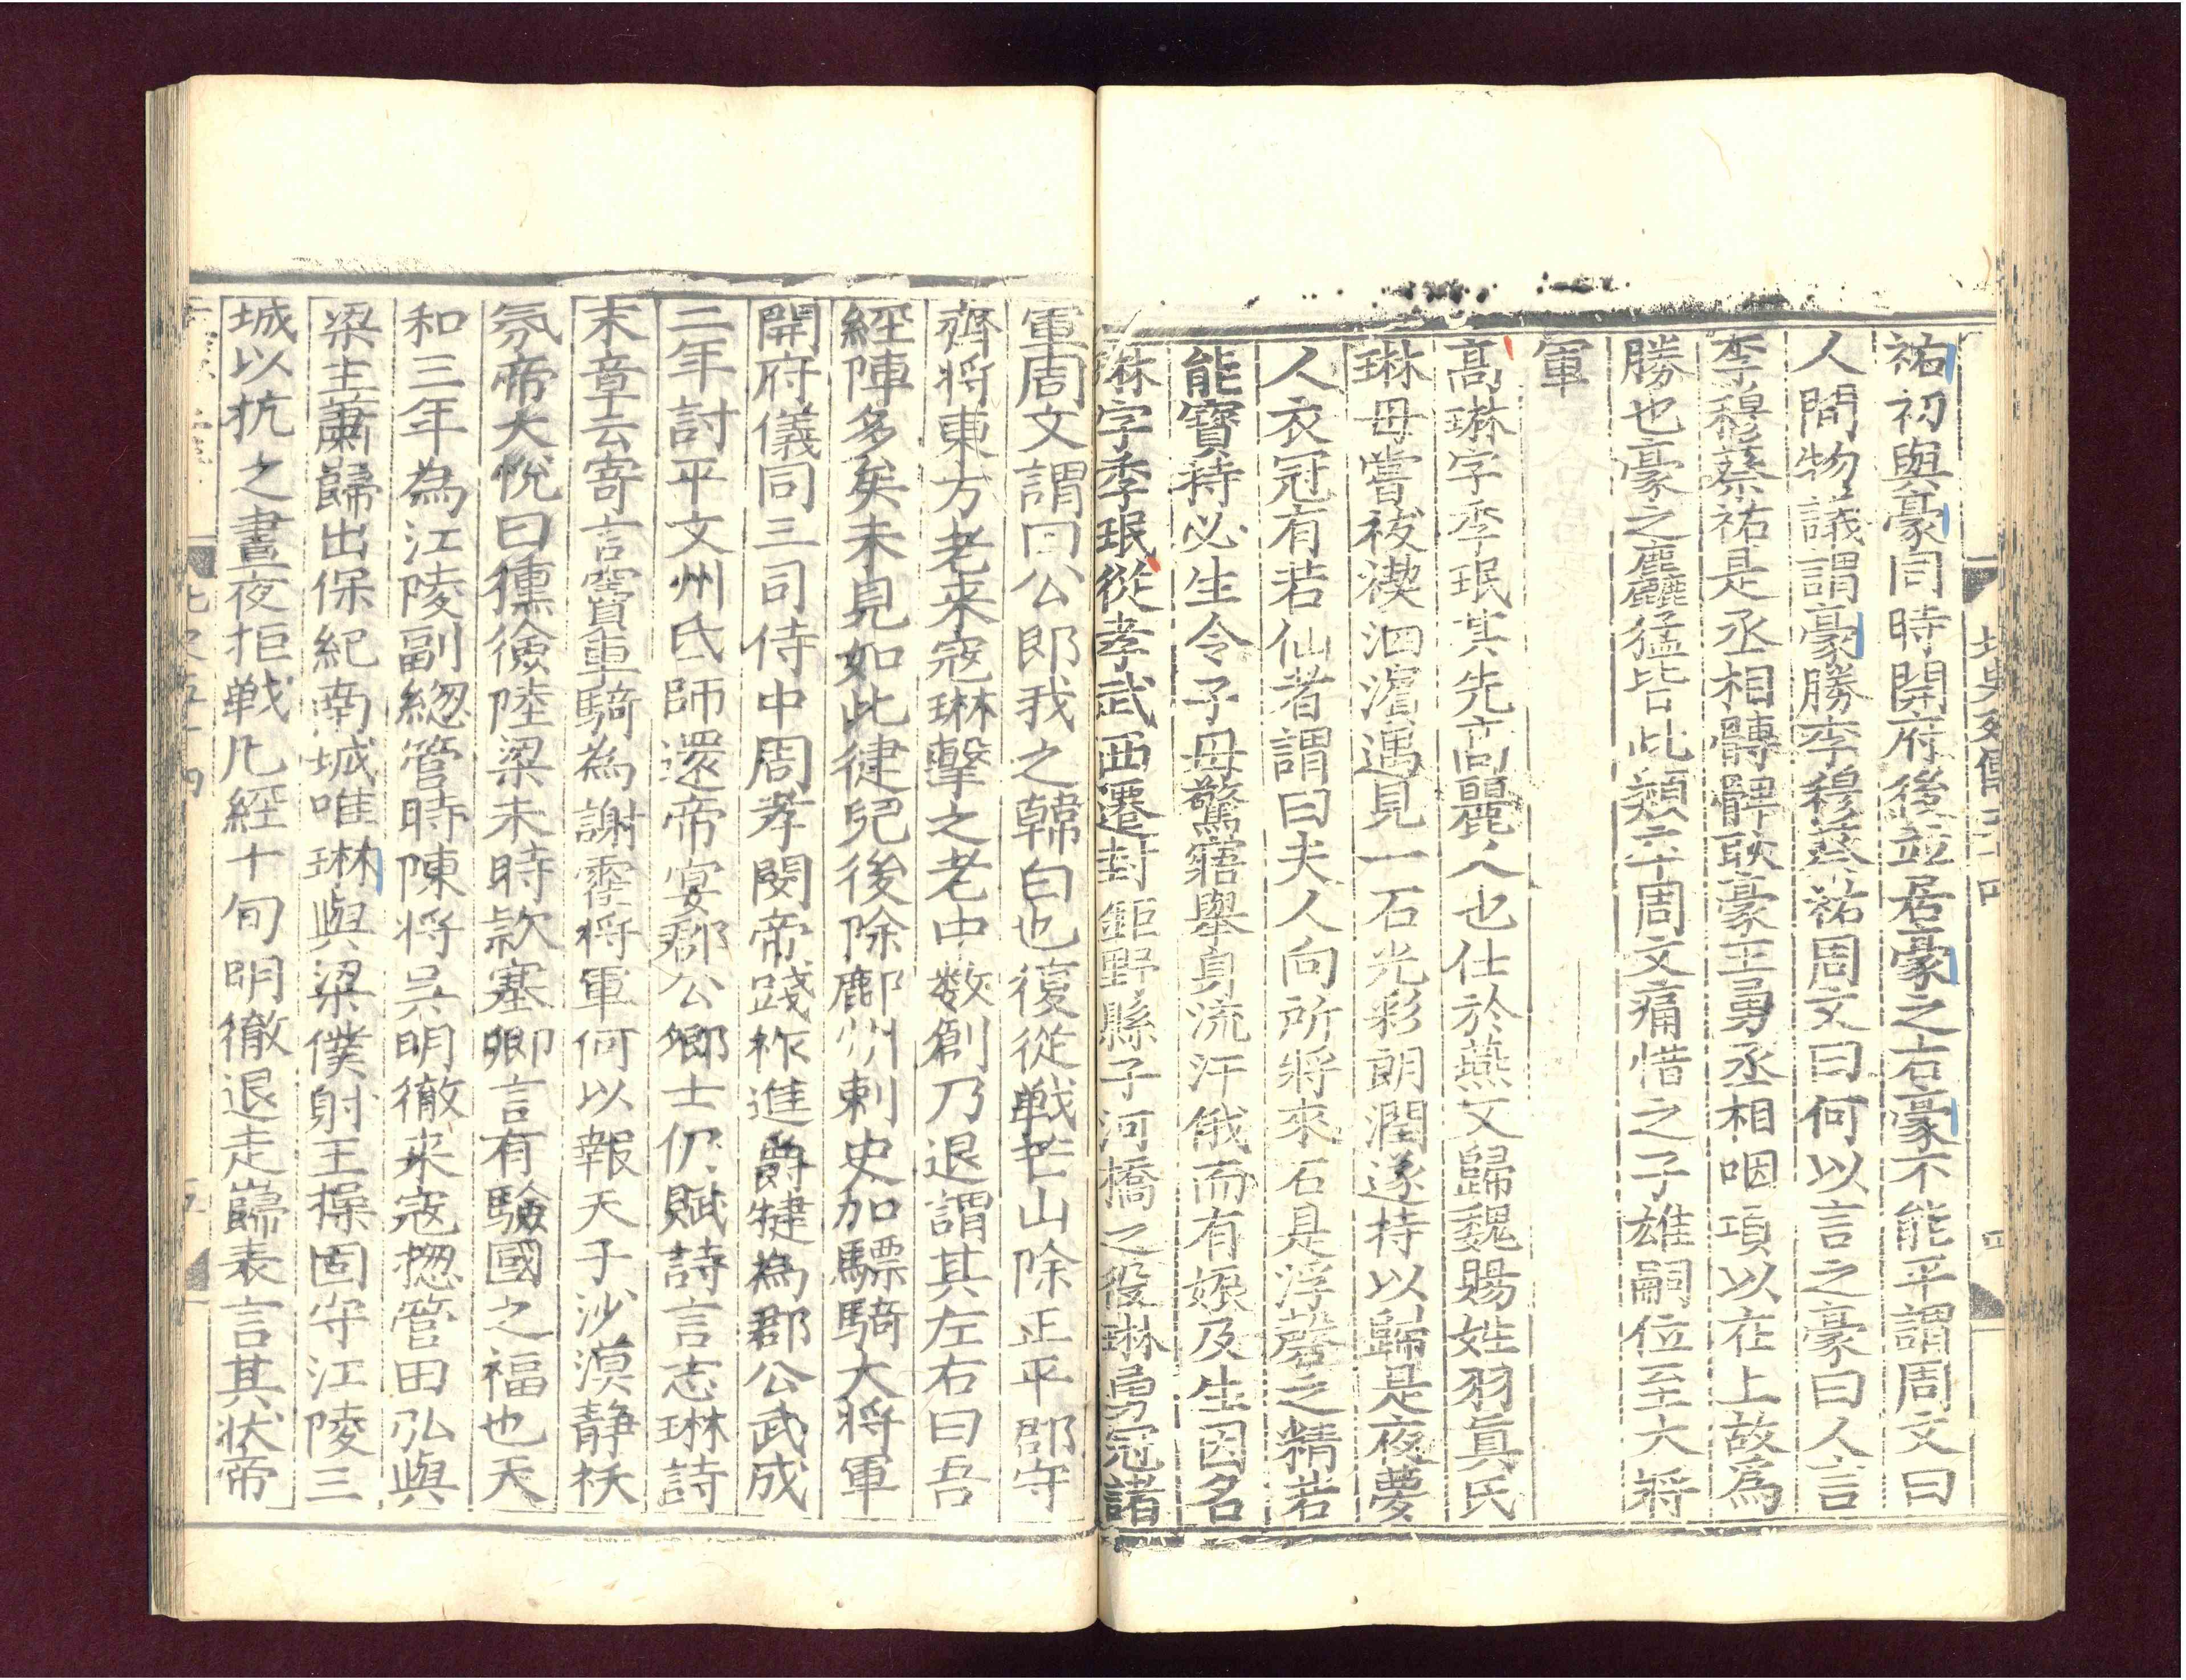 祐初與豪同時開府後並居豪之右豪不能平謂周文曰
人間物議謂豪勝李穆蔡祐周文曰何以言之豪曰人言
李穆蔡祐是丞相髆髀耿豪王勇丞相咽項以在上故爲
勝也豪之麤猛皆此類六十周文痛惜之子雄嗣位至大將
軍
高琳字季珉其先高麗人也仕於燕又歸魏賜姓羽眞氏
琳母嘗祓禊泗濱遇見一石光彩朗潤遂持以歸是夜夢
人衣冠有若仙者謂曰夫人向所將來石是浮磬之精若
能寳持必生令子母驚寤舉身流汗俄而有娠及生因名
琳字季珉從孝武西遷封鉅野縣子河橋之役琳勇冠諸
軍周文謂曰公郎我之韓白也復從戦芒山除正平郡守
齊将東方老来寇琳擊之老中数創乃退謂其左右曰吾
經陣多矣未見如此健兒後除鄜州刺史加驃騎大将軍
開府儀同三司侍中周孝閔帝踐祚進爵犍為郡公武成
二年討平文州氐師還帝宴郡公卿士仍賦詩言志琳詩
末章云寄言竇車騎為謝霍将軍何以報天子沙漠静祅
氛帝大悅曰獯獫陸梁未時款塞卿言有驗國之福也天
和三年為江陵副總管時陳将呉明徹来寇揔管田弘與
梁主蕭歸出保紀南城唯琳與梁僕射王操固守江陵三
城以抗之晝夜拒戦凡經十旬明徹退走歸表言其状帝
北史列傳五十四
四